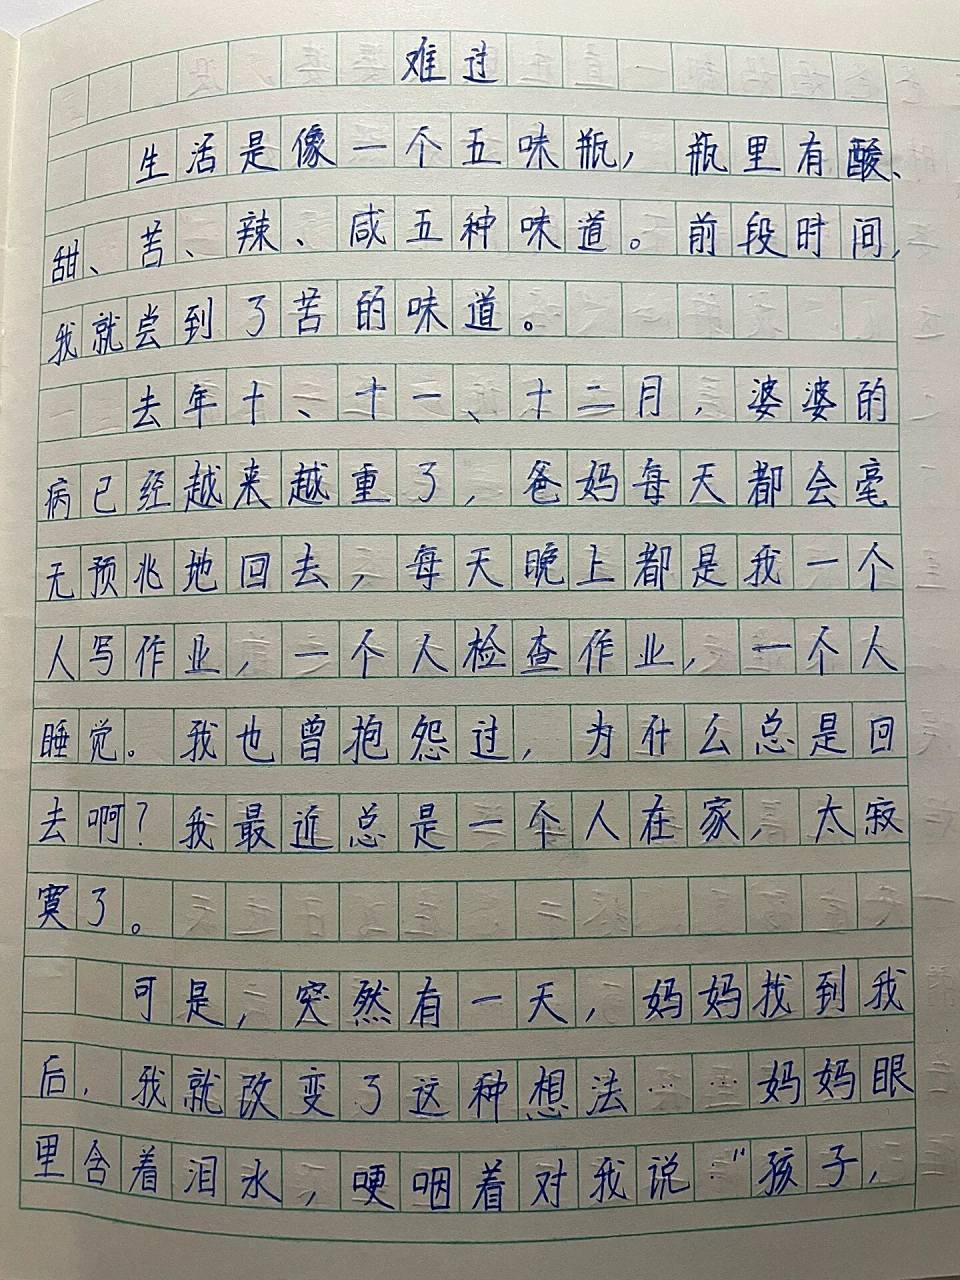 难过
生活是像一个五味瓶，瓶里有酸、
甜、苦、辣、咸五种味道。前段时间，
我就尝到了苦的味道。
去年十、十一、十二月，婆婆的
病已经越来越重了，爸妈每天都会毫
无预兆地回去，每天晚上都是我一个
人写作业，一个人检查作业，一个人
睡觉。我也曾抱怨过，为什么总是回
去啊？我最近总是一个人在家，太寂
寞了。
可是，突然有一天，妈妈找到我
后，我就改变了这种想法……妈妈眼
里含着泪水，哽咽着对我说：“孩子，